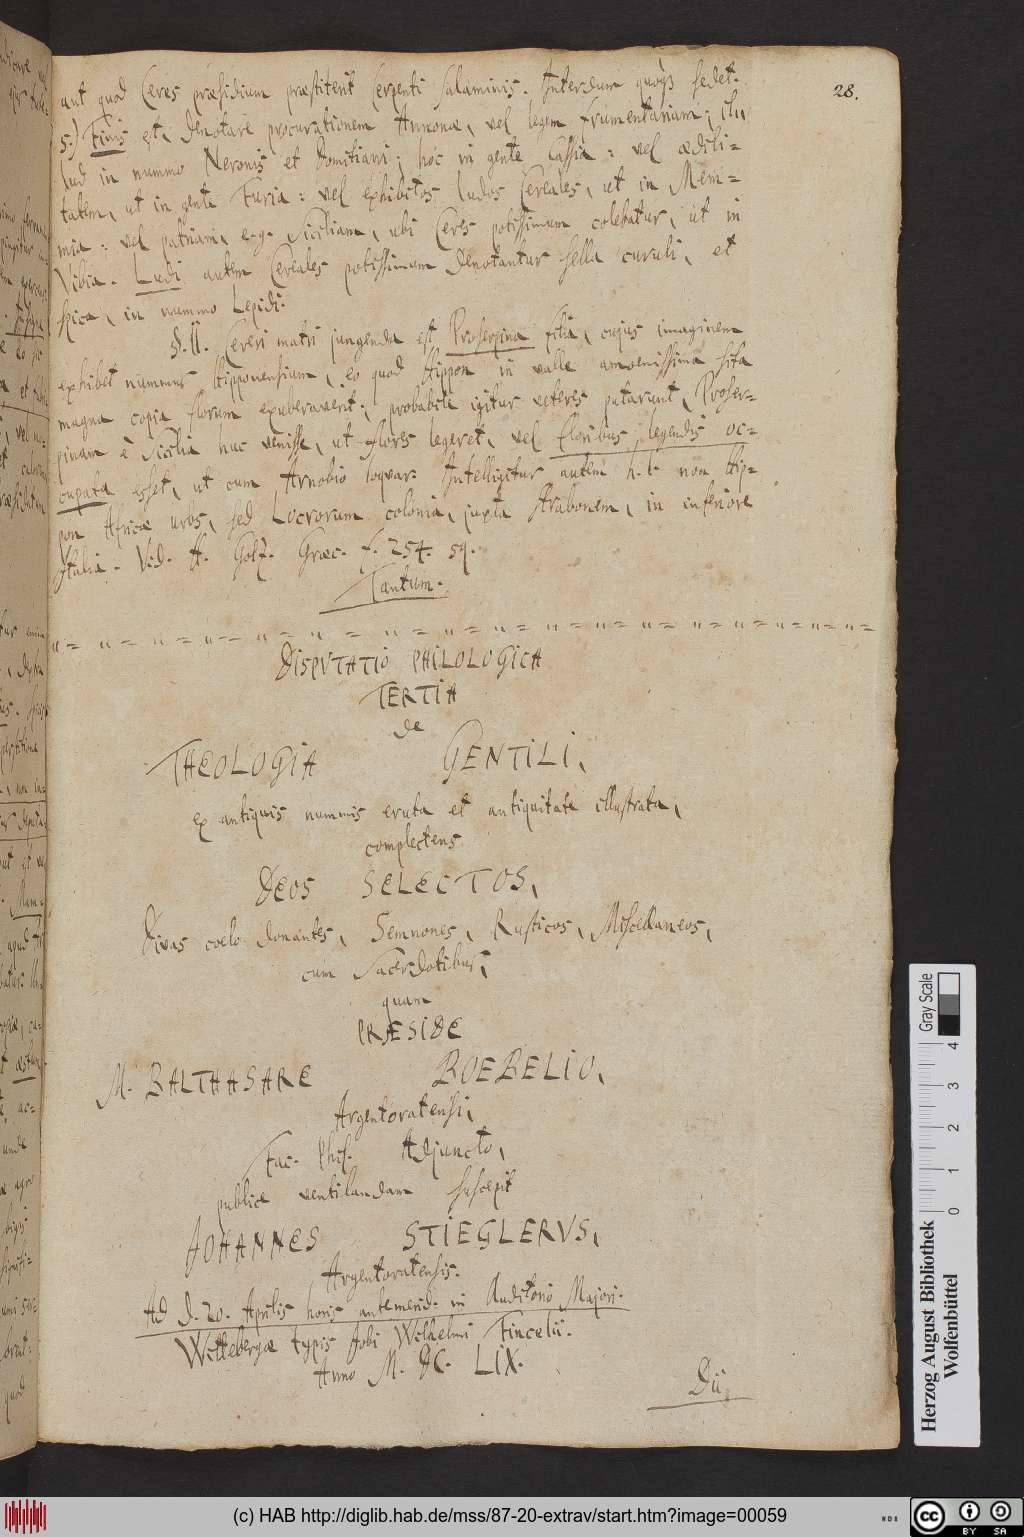 28.
aut quod Ceres præsidium præstiterit serpenti Salaminis. Interdum quoqß sedet.
5.) Finis est, denotare procurationem Annonæ, vel legem frumentariam; illud
in nummo Neronis et Domitiani; hoc in gente Cassia: vel ædili=
tatem, ut in gente Furia: vel exhibitos ludos Cereales, ut in Mem=
mia: vel patriam, e.g. Siciliam, ubi Ceres potissimum colebatur, ut in
Vibia. Ludi autem Cereales potissimum denotantur sella curuli, et
spica, in nummo Lepidi.
§. II. Cereri matri jungenda est Proserpina filia, cujus imaginem
exhibet nummus Hipponensium, eo quod Hippon in valle amoenissima sita
magna copia florum exuberaverit; probabile igitur veteres putarunt, Proser=
pinam è Sicilia huc venisse, ut flores legeret, vel floribus legendis oc=
cupata esset, ut cum Arnobio loquar. Intelligitur autem h. l. non Hip=
pon Africæ urbs, sed Locrorum colonia, juxta Arabonem, in inferiore
Italia. Vid. H. Golz. Græc. f. 254. sq.
Tantum.
DISPVTATIO PHILOLOGICA
TERTIA
de
THEOLOGIA GENTILI,
ex antiquis nummis eruta et antiquitate illustrata,
complectens
DEOS SELECTOS,
Divas coelo donantes, Semnones, Rusticos, Miscellaneos,
cum Sacerdotibus,
quam
PRÆSIDE
M. BALTHASARE BOEBELIO,
Argentoratensi,
Fac. Phil. Adjuncto,
publice ventilandam suscepit
JOHANNES STIEGLERVS,
Argentoratensis.
Ad d. 20. Aprilis horis antemerid. in Auditorio Majori.
Wittebergæ typis Jobi Wilhelmi Fincelii.
Anno M. DC. LIX.
Dii
Gray Scale
0 1 2 3 4
Herzog August Bibliothek
Wolfenbüttel
(c) HAB http://diglib.hab.de/mss/87-20-extrav/start.htm?image=00059
cc BY SA